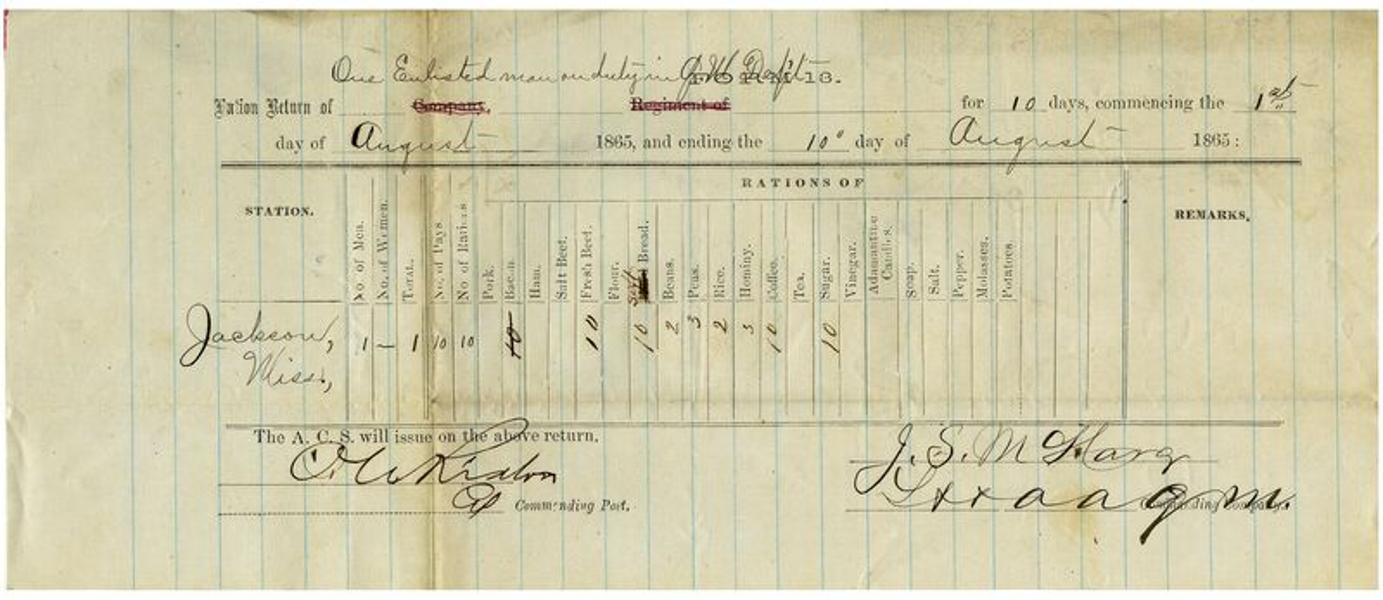 One Enlisted man on duty in Q.M. Dept
FORM 13.
Ration Return of Company, Regiment of for 10 days, commencing the 1st
day of August 1865, and ending the 10" day of August 1865:
RATIONS OF
STATION. No. of Men. No. of Women. Total. No. of Days No. of Rations Pork. Bacon. Ham. Salt Beef. Fresh Beef. Flour. Soft Bread. Beans. Peas. Rice. Hominy. Coffee. Tea. Sugar. Vinegar. Adamantine Candles. Soap. Salt. Pepper. Molasses. Potatoes. REMARKS.
Jackson, 1 — 1 10 10 10 10 10 2 3 2 3 10 10
Miss,
The A. C. S. will issue on the above return,
J. S. McHarg
Commending Post.
Commanding Company.